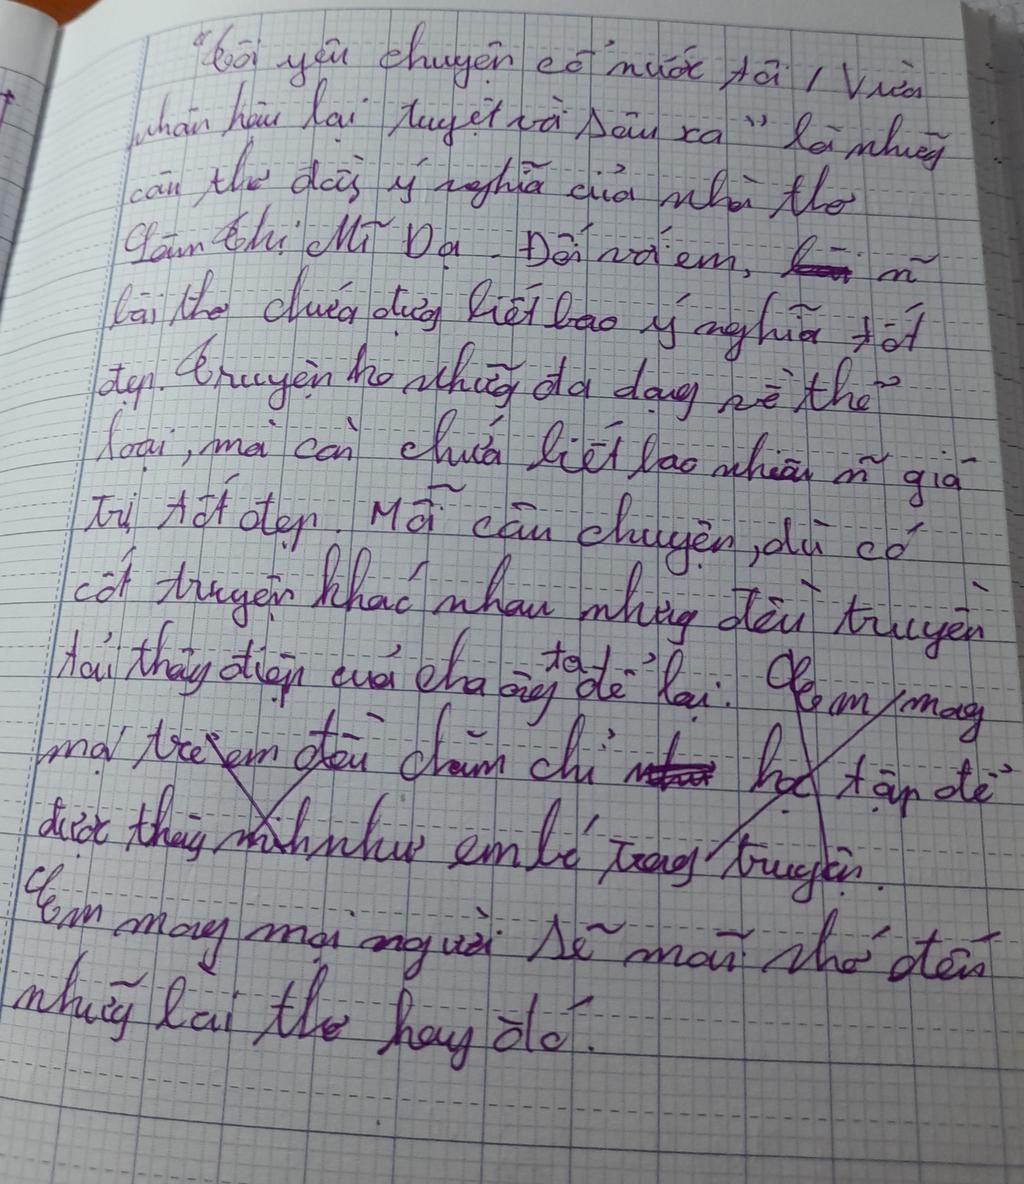 "Tôi yêu chuyện cổ nước tôi / Vừa
nhân hậu lại tuyệt vời sâu xa" là những
câu thơ đầy ý nghĩa của nhà thơ
Lâm Thị Mĩ Dạ. Đối với em, n~
bài thơ chứa đựng biết bao ý nghĩa tốt
đẹp. Truyện ko những đa dạng về thể
loại, mà còn chứa biết bao nhiêu n~ giá
trị tốt đẹp. Mỗi câu chuyện, dù có
cốt truyện khác nhau nhưng đều truyền
tải thông điệp của cha ông ta để lại. Em mong
mọi trẻ em đều chăm chỉ học tập để
được thông minh như em bé trong truyện.
Em mong mọi người sẽ mãi nhớ đến
những bài thơ hay đó.